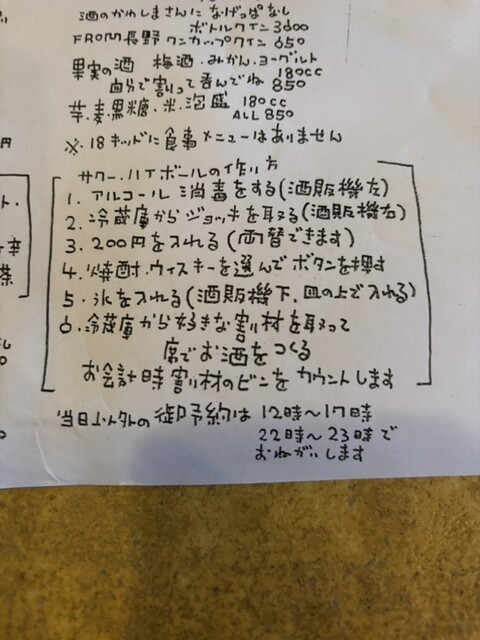 酒のかわしまさんになげっぱなし
ボトルワイン 3600
FROM長野 ワンカップワイン 650
果実の酒 梅酒.みかん.ヨーグルト
180cc
自分で割って呑んでね 850
芋.麦.黒糖.米.泡盛 180cc
ALL 850
※.18キッドに食事メニューはありません
サワー.ハイボールの作り方
1. アルコール消毒をする(酒販機左)
2. 冷蔵庫からジョッキを取る(酒販機右)
3. 200円を入れる(両替できます)
4. 焼酎.ウィスキーを選んでボタンを押す
5. 氷を入れる(酒販機下.皿の上で入れる)
6. 冷蔵庫から好きな割り材を取って
席でお酒をつくる
お会計時割り材のビンをカウントします
当日以外の御予約は 12時〜17時
22時〜23時で
おねがいします